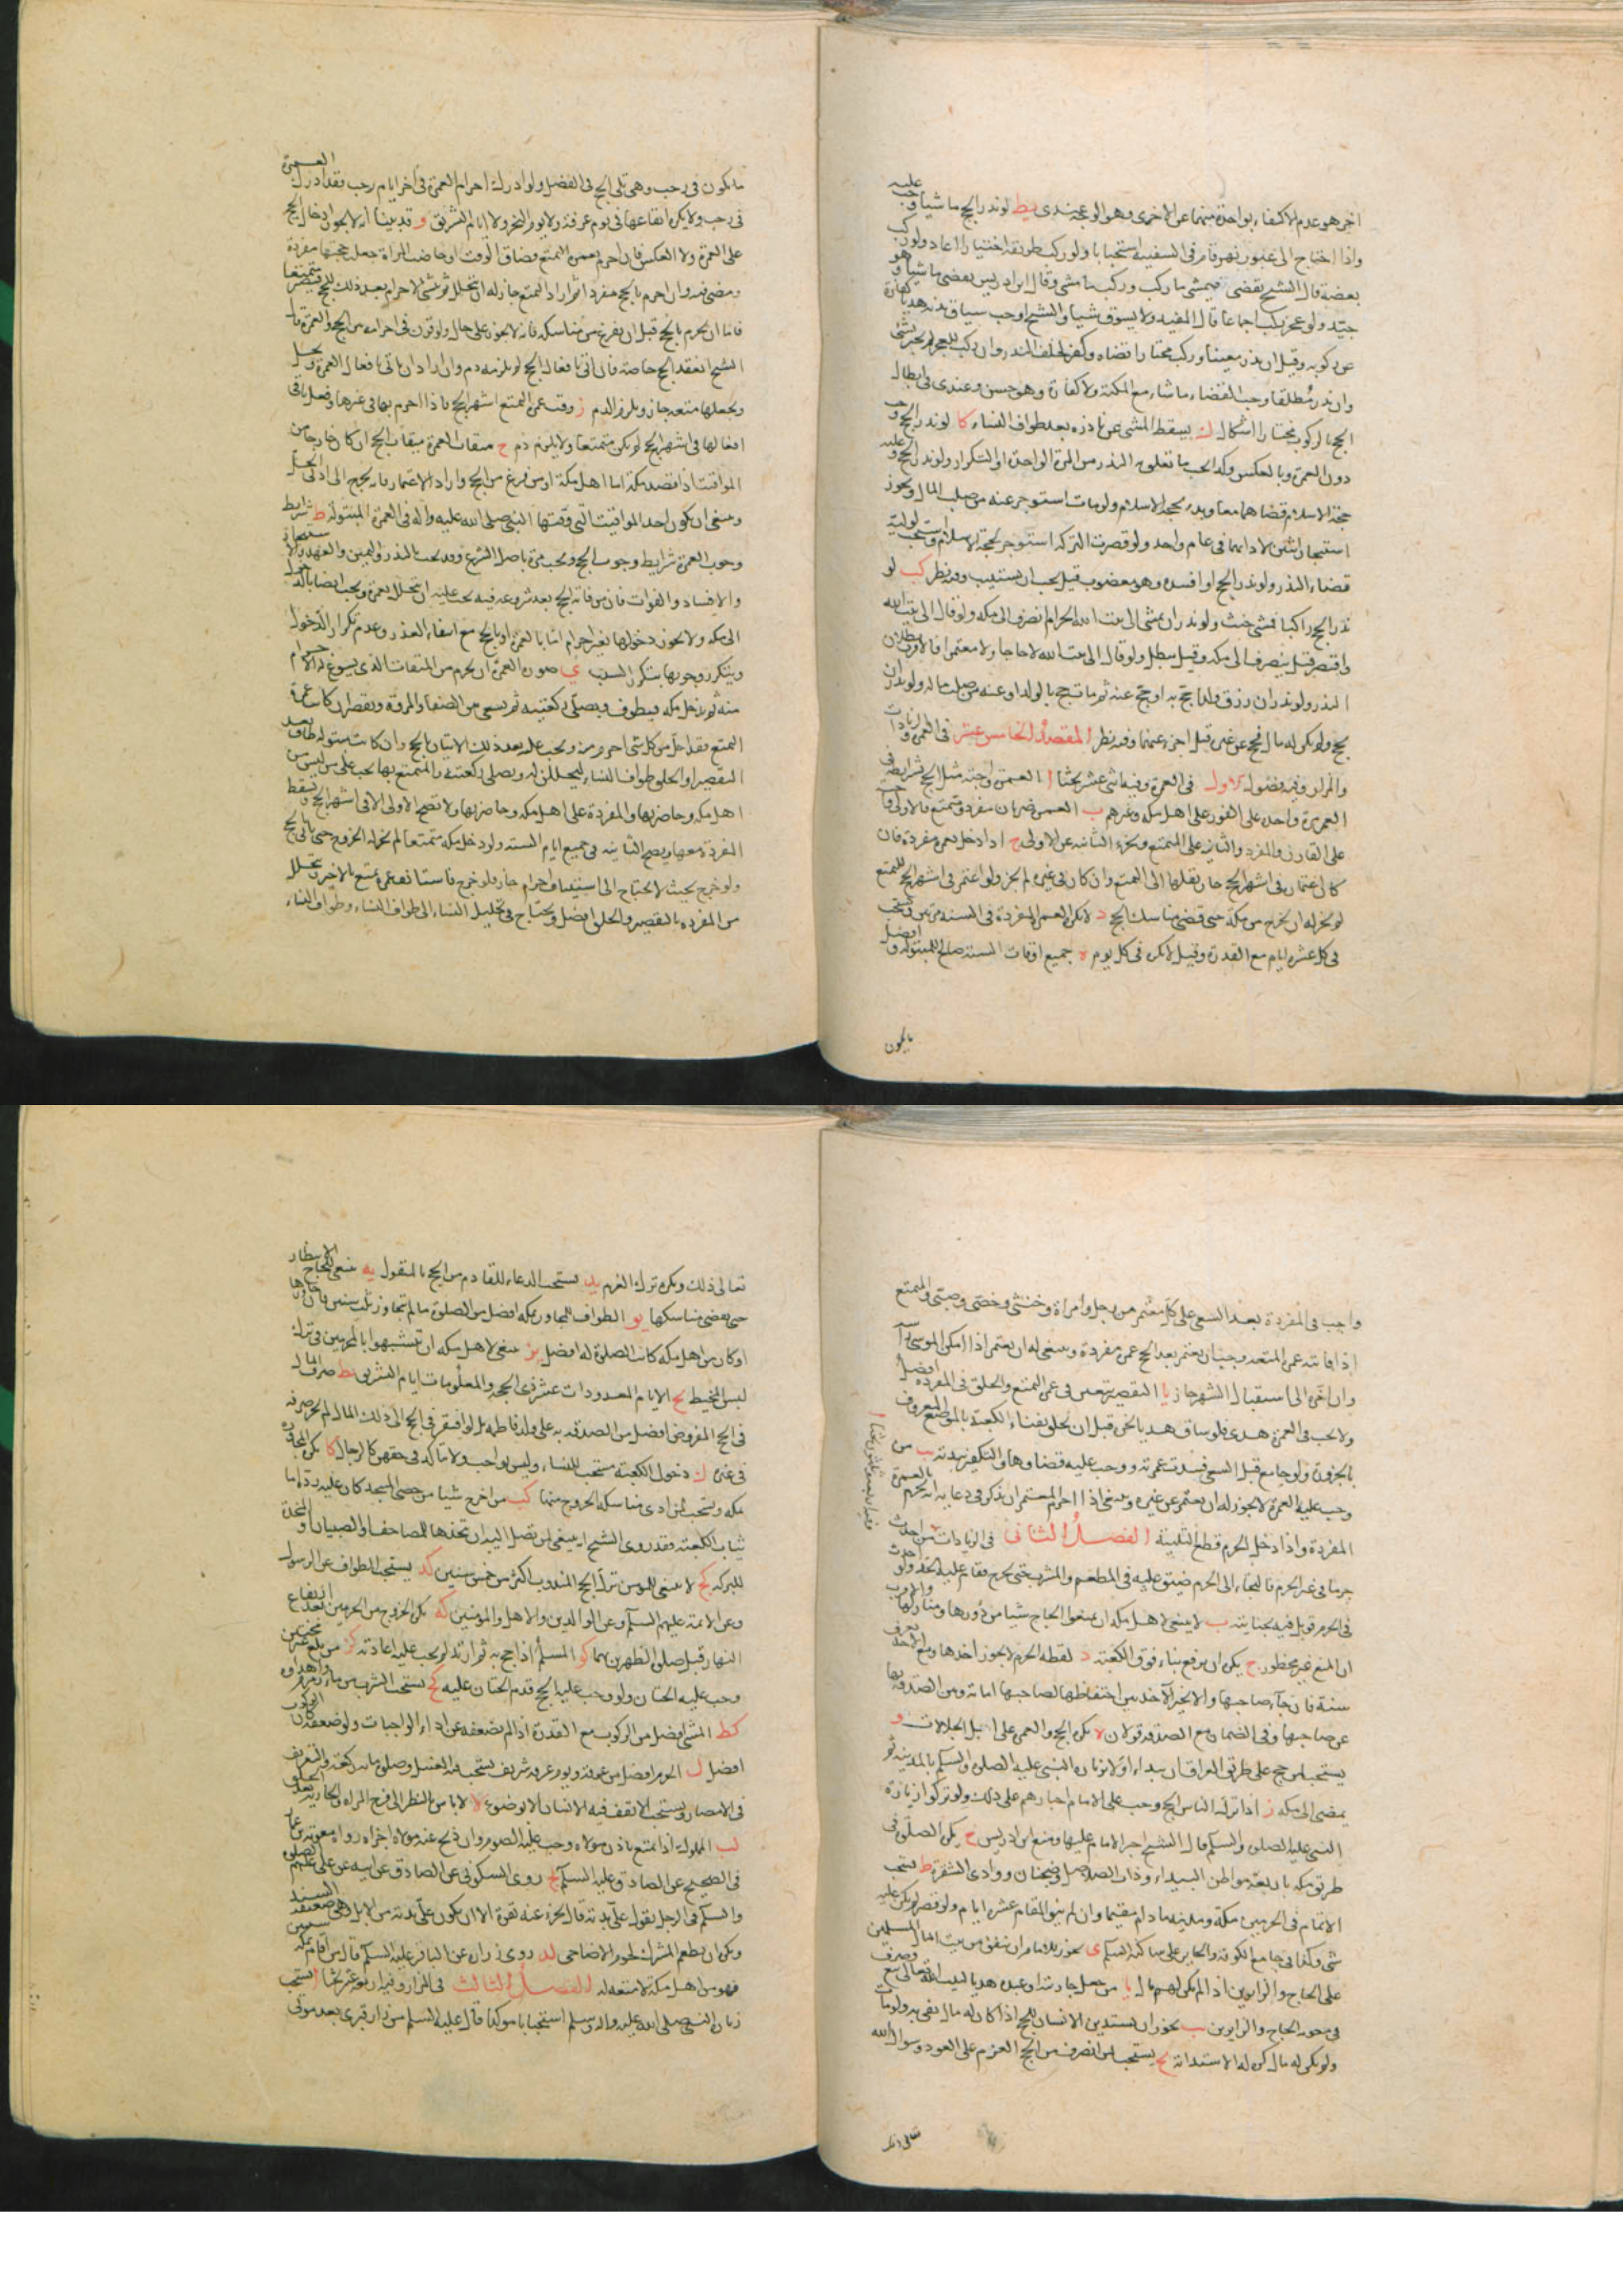 اخر هو عدم الاكتفاء بواحدة منهما عن الاخرى وهو الوجه عندى يط لو نذر الحج ماشيا وجب عليه
واذا احتاج الى عبور نهر قام فى السفينة استحبابا ولو ركب طريقه اختيارا اعاد ولو ركب
بعضه قال الشيخ يقضى فيمشى ما ركب ويركب ما مشى وقال ابن ادريس يقضى ماشيا وهو
جيد ولو عجز ركب اجماعا قال المفيد ولا يسوق شيا والشيخ اوجب سياق بدنة هديا كفارة
عن ركوبه وقيل ان نذر معينا وركب مختارا قضاه وكفر لخلف النذر وان ركب للعجز لم يجبر بشئ
وان نذر مطلقا وجب القضاء ماشيا مع المكنة ولا كفارة وهو حسن وعندى فى ابطال
الحج بالركوب مختارا اشكال ك يسقط المشى عن ناذره بعد طواف النساء كا لو نذر الحج وجب
دون العمرة وبالعكس وكذا يجب ما تعلق به النذر من المرة الواحدة او التكرار ولو نذر الحج وعليه
حجة الاسلام قضاهما معا ويبدء بحجة الاسلام ولو مات استوجر عنه من صلب المال ويجوز
استيجار اثنين لادائهما فى عام واحد ولو قصرت التركة استوجر لحجة الاسلام واستحب لوليه
قضاء النذر ولو نذر الحج او افسده وهو معضوب قيل يجب ان يستنيب وفيه نظر كب لو
نذر الحج راكبا فمشى حنث ولو نذر ان يمشى الى بيت الله الحرام انصرف الى مكة ولو قال الى بيت الله
واقتصر قيل ينصرف الى مكة وقيل يبطل ولو قال الى بيت الله لا حاجا ولا معتمرا فالاقرب بطلان
النذر ولو نذر ان رزق ولدا يحج به او يحج عنه ثم مات حج بالولد او عنه من صلب ماله ولو نذر ان
يحج ولم يكن له مال فحج عن غيره قيل اجزء عنهما وفيه نظر المقصد الخامس عشر فى العمرة والزيادات
والمزار وفيه فصول الاول فى العمرة وفيه اثنى عشر بحثا ا العمرة واجبة مثل الحج بشرايطه فى
العمر مرة واحدة على الفور على اهل مكة وغيرهم ب العمرة ضربان مفردة ومتمتع فالاولى واجبة
على القارن والمفرد والثانى على المتمتع وتجزء الثانية عن الاولى ج اذا دخل بعمرة مفردة فان
كان اعتماره فى اشهر الحج جاز نقلها الى التمتع وان كان فى غيره لم يجز ولو اعتمر فى اشهر الحج للتمتع
لم يجز له ان يخرج من مكة حتى قضى مناسك الحج د لا يكره العمرة المفردة فى السنة مرتين ويستحب
فى كل عشرة ايام مع القدرة وقيل لا يكره فى كل يوم ه جميع اوقات السنة صالح للمبتولة وافضل
ما يكون
ما يكون فى رجب وهى تلى الحج فى الفضل ولو ادرك احرام العمرة فى آخر ايام رجب فقد ادرك العمرة
فى رجب ولا يكره ايقاعها فى يوم عرفة ولا يوم النحر ولا ايام التشريق و قد بينا انه لا يجوز ادخال الحج
على العمرة ولا العكس فان احرم بعمرة التمتع فضاق الوقت او حاضت المراة جعله حجتها مفردة
ومضى فيه وان احرم بالحج مفردا ثم اراد التمتع جاز له ان يتحلل ثم ينشئ الاحرام بعد ذلك للحج فيصير متمتعا
فاما ان يحرم بالحج قبل ان يفرغ من مناسكه فانه لا يجوز على حال ولو قرن فى احرامه بين الحج والعمرة قال
الشيخ انعقد الحج خاصة فان اتى بافعال الحج لم يلزمه دم وان اراد ان ياتى بافعال العمرة ويحل
ويجعلها متعة جاز ويلزم الدم ز وقت عمرة التمتع اشهر الحج فاذا احرم بها فى غيرها وفعل باقى
افعالها فى اشهر الحج لم يكن متمتعا ولا يلزم دم ح ميقات العمرة ميقات الحج ان كان خارجا من
المواقيت اذا قصد مكة اما اهل مكة او من فرغ من الحج واراد الاعتمار فانه يخرج الى ادنى الحل
وينبغى ان يكون احد المواقيت التى وقتها النبى صلى الله عليه وآله فى العمرة المبتولة ط شرايط
وجوب العمرة شرايط وجوب الحج ويجب مرة باصل الشرع وقد تجب بالنذر واليمين والعهد والاستيجار
والافساد والفوات فان من فاته الحج بعد شروعه فيه يجب عليه ان يتحلل بعمرة ويجب ايضا بالدخول
الى مكة ولا يجوز دخولها بغير احرام اما بالعمرة او بالحج مع انتفاء العذر وعدم تكرار الدخول
ويتكرر وجوبها بتكرر السبب ى صورة العمرة ان يحرم من الميقات الذى يسوغ له الاحرام
منه ثم يدخل مكة فيطوف ويصلى ركعتيه ثم يسعى بين الصفا والمروة ويقصر ان كانت عمرة
التمتع فقد احل من كل شئ احرم منه ويجب عليه بعد ذلك الاتيان بالحج وان كانت مبتولة طاف بعد
التقصير او الحلق طواف النساء ليتحللن له ويصلى ركعتيه والمتمتع بها تجب على من ليس من
اهل مكة وحاضريها والمفردة على اهل مكة وحاضريها ولا تصح الاولى الا فى اشهر الحج وتسقط
المفردة معها ويصح الثانية فى جميع ايام السنة ولو دخل مكة متمتعا لم يجز له الخروج حتى ياتى بالحج
ولو خرج بحيث لا يحتاج الى استيناف احرام جاز ولو خرج فاستانف عمرة تمتع بالاخيرة ويتحلل
من المفردة بالتقصير والحلق افضل ويحتاج فى تحليل النساء الى طواف النساء وطواف النساء
واجب فى المفردة بعد السعى على كل معتمر من رجل وامراة وخنثى وخصى وصبى والمتمتع
اذا فاتته عمرة المتعة وجب ان يعتمر بعد الحج عمرة مفردة وينبغى له ان يعتمر اذا امكن الموسى
وان اخره الى استقبال الشهر جاز يا التقصير يتعين فى عمرة التمتع والحلق فى المفردة افضل
ولا يجب فى العمرة هدى فلو ساق هديا نحره قبل ان يحلق بفناء الكعبة بالموضع المعروف
بالحزورة ولو جامع قبل السعى فسدت عمرته ووجب عليه قضاؤها والتكفير ببدنة يب من
وجب عليه العمرة لا يجوز له ان يعتمر عن غيره وينبغى اذا احرم المعتمر ان يذكر فى دعايه انه يحرم بالعمرة
المفردة واذا دخل الحرم قطع التلبية الفصل الثانى فى الزيادات من احدث
جرما فى غير الحرم فالتجاء الى الحرم ضيق عليه فى المطعم والمشرب حتى يخرج فيقام عليه الحد ولو احدث
فى الحرم قوبل فيه بجنايته ب لا ينبغى لاهل مكة ان يمنعوا الحاج شيا من دورها ومنازلها والاقرب
ان المنع غير محظور ج يكره ان يرفع بناء فوق الكعبة د لقطة الحرم لا يجوز اخذها ومع الاخذ يعرف
سنة فان جاء صاحبها والا تخير الآخذ بين احتفاظها لصاحبها امانة وبين الصدقة بها
عن صاحبها وفى الضمان مع الصدقة قولان ه يكره الحج والعمرة على ابل الجلالات و
يستحب لمن حج على طريق العراق ان يبداء اولا بزيارة النبى عليه الصلوة والسلم بالمدينة ثم
يمضى الى مكة ز اذا ترك الناس الحج وجب على الامام اجبارهم على ذلك ولو تركوا زيارة
النبى عليه الصلوة والسلم قال الشيخ اجبر الامام عليها ومنع ابن ادريس ح يكره الصلوة فى
طريق مكة باربعة مواطن البيداء وذات الصلاصل وضجنان ووادى الشقرة ط يستحب
الاتمام فى الحرمين مكة ومدينة ما دام مقيما وان لم ينو المقام عشرة ايام ولو قصر لم يكن عليه
شئ وكذا فى جامع الكوفة والحاير على ساكنه السلم ى يجوز للامام ان ينفق من بيت المال المسلمين
على الحاج والزايرين اذا لم يكن لهم مال يا من جعل جاريته او عبده هديا لبيت الله تعالى بيع وصرف
فى معونة الحاج والزايرين يب يجوز ان يستدين الانسان للحج اذا كان له مال يفى به ولو مات
ولو لم يكن له مال كره له الاستدانة يج يستحب لمن انصرف من الحج العزم على العود وسوال الله
تعالى ذلك
تعالى ذلك ويكره ترك العزم يد يستحب الدعاء للقادم من الحج بالمنقول يه ينبغى للحاج الانتظار
حتى يقضى مناسكها يو الطواف للمجاور بمكة افضل من الصلوة ما لم يتجاوز ثلث سنين فان جاوزها
او كان من اهل مكة كانت الصلوة له افضل يز ينبغى لاهل مكة ان يتشبهوا بالمحرمين فى ترك
لبس المخيط يح الايام المعدودات عشر ذى الحجة والمعلومات ايام التشريق يط صرف المال
فى الحج المفروض افضل من الصدقة به على ولد فاطمة بل لو افتقر فى الحج الى ذلك المال لم يجز صرفه
فى غيره ك دخول الكعبة مستحب للنساء وليس بواجب ولا متاكد فى حقهن كالرجال كا يكره المجاورة
مكة ويستحب لمن ادى مناسكه الخروج منها كب من اخرج شيا من حصى المسجد كان عليه رده اما
ثياب الكعبة فقد روى الشيخ انه ينبغى لمن تصل اليه ان يتخذها للمصاحف والصبيان او المخدة
للبركة كج لا ينبغى للمومن ترك الحج المندوب اكثر من خمس سنين كد يستحب الطواف عن الرسول
وعن الائمة عليهم السلم وعن الوالدين والاهل والمومنين كه يكره الخروج من الحرمين بعد ارتفاع
النهار قبل صلوة الظهرين بهما كو المسلم اذا حج به ثم ارتد لم يجب عليه اعادته كز من بلغ غير مختتن
وجب عليه الختان ولو وجب عليه الحج قدم الختان عليه كح يستحب الشرب من ماء زمزم واهداؤه
كط المشى افضل من الركوب مع القدرة اذا لم يضعفه عن اداء الواجبات ولو ضعفه كان الركوب
افضل ل الحرم افضل من عرفة ويوم عرفة شريف يستحب فيه الغسل وصلوة مائة ركعة والتعريف
فى الامصار ويستحب الا يقف فيه الانسان الا بوضوء لا لا باس بالنظر الى فرج المراة والجارية بعد الحلق
لب المملوك اذا تمتع باذن مولاه وجب عليه الصوم وان ذبح عنه مولاه اجزاه رواه معوية بن عمار
فى الصحيح عن الصادق عليه السلم لج روى السكونى عن الصادق عن ابيه عن على عليهم الصلوة
والسلم فى الرجل يقول على بدنة قال تجزء عنه بقرة الا ان يكون على بدنة من الابل وفى السند ضعف
ويكره ان يطعم المشرك لحوم الاضاحى لد روى زرارة عن الباقر عليه السلم قال من اقام بمكة سنتين
فهو من اهل مكة لا متعة له الفصل الثالث فى المزار وفيه اربعة عشر بحثا ا يستحب
زيارة النبى صلى الله عليه وآله وسلم استحبابا موكدا قال عليه السلم من زار قبرى بعد موتى